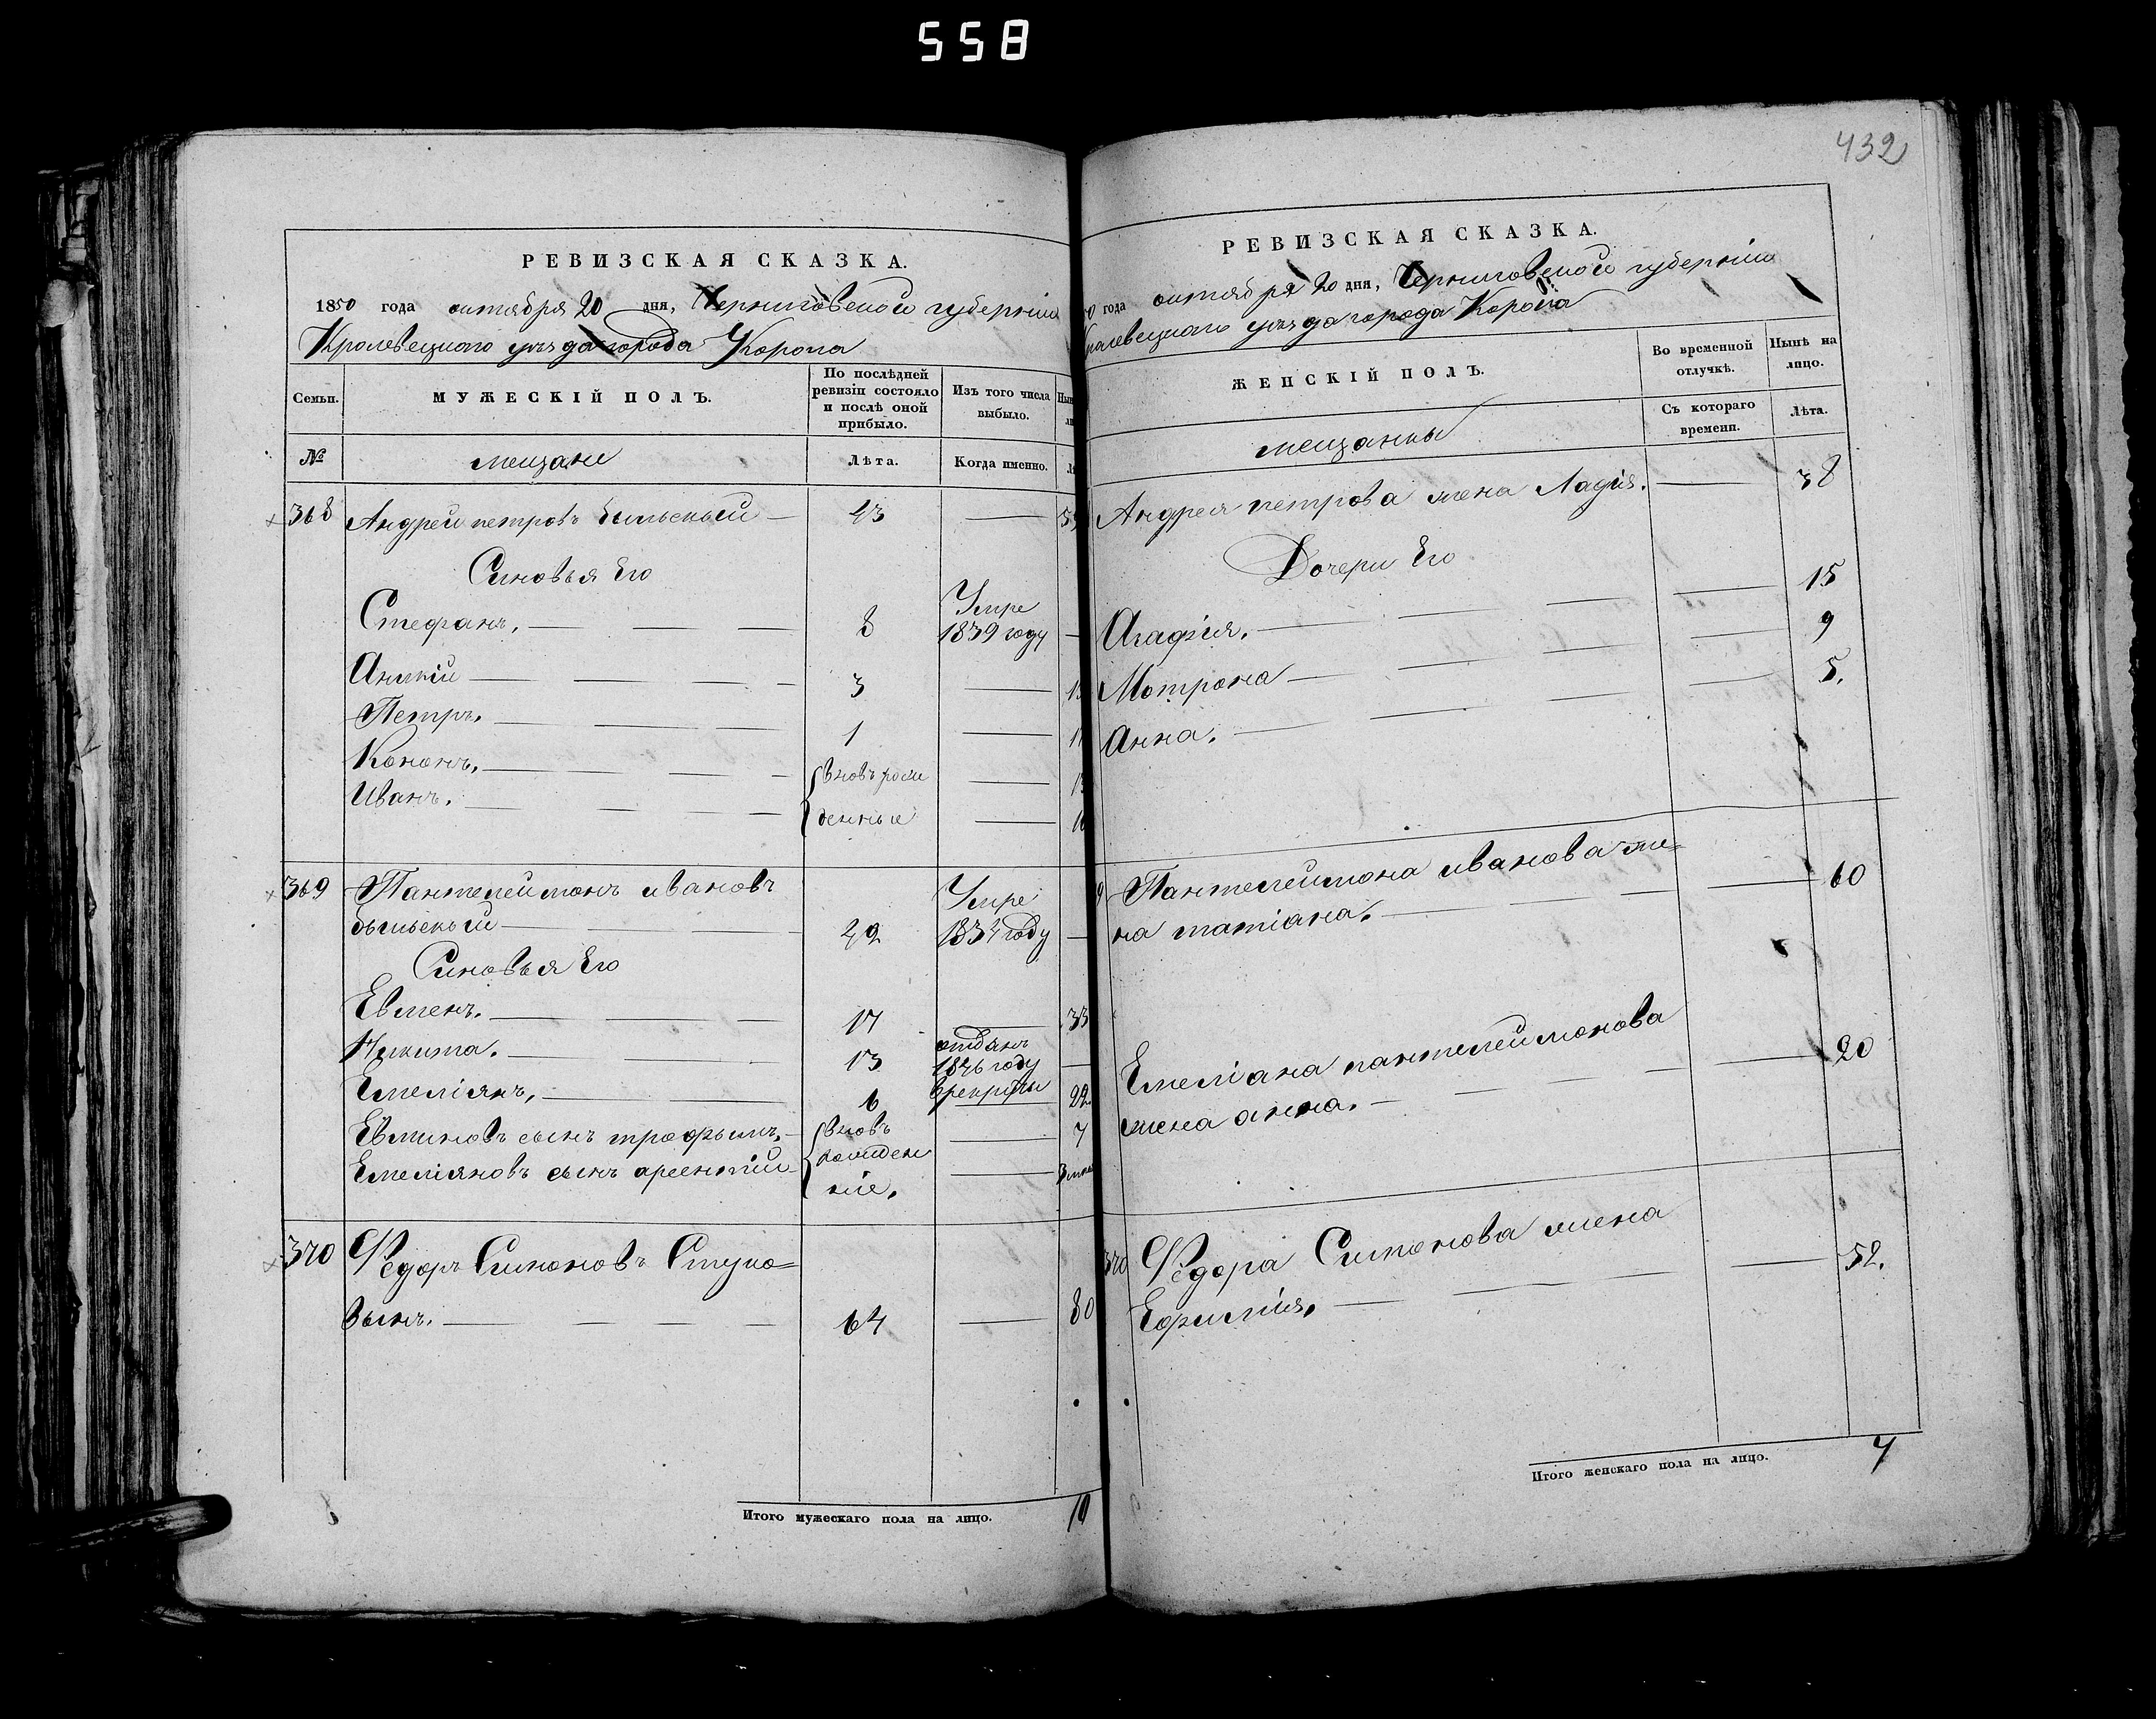 558
РЕВИЗСКАЯ СКАЗКА.
1850 года октября 20 дня, Черниговской губерніи
Кролевецкаго уезда города Коропа
Семьи.
МУЖЕСКІЙ ПОЛЪ.
По послѣдней ревизіи состояло и послѣ оной прибыло.
Изъ того числа выбыло.
№
мещане
Лѣта.
Когда именно.
368 Андрей петровъ бильский — 43 —
Синовья Его
Стефанъ, — 8 Умре 1839 году —
Аникій — 3 —
Петръ. — 1 —
Кононъ, — вновь рож —
Иванъ. — денные —
369 Пантелеймонъ ивановъ
бильский — 42 Умре 1834 году —
Синовья Его
Евменъ. — 17 — 33
Никита. — 13 отдан 1846 году в рекруты —
Емеліянъ, — 6 — 22
Евминовъ сынъ трофымъ. — вновь — 7
Емеліяновъ сынъ арсентій — рожден ніе. — 3
370 Федоръ Симоновъ Ступо=
вынъ. — 64 — 80
Итого мужескаго пола на лицо. 10
432
РЕВИЗСКАЯ СКАЗКА.
года октября 20 дня, Черниговской губерніи
Кролевецкаго уезда города Коропа
ЖЕНСКІЙ ПОЛЪ.
Во временной отлучкѣ.
Нынѣ на лицо.
мещанки
Съ котораго времени.
Лѣта.
Андрея петрова жена Ладія. — 38
Дочери Его
Агафія. — 15
Мотрона — 9
Анна. — 5.
Пантелеймона иванова же=
на татіана. — 60
Емеліана пантелеймонова
жена анна. — 20
370 Федора Симонова жена
Ефимія, — 52.
Итого женскаго пола на лицо. 7